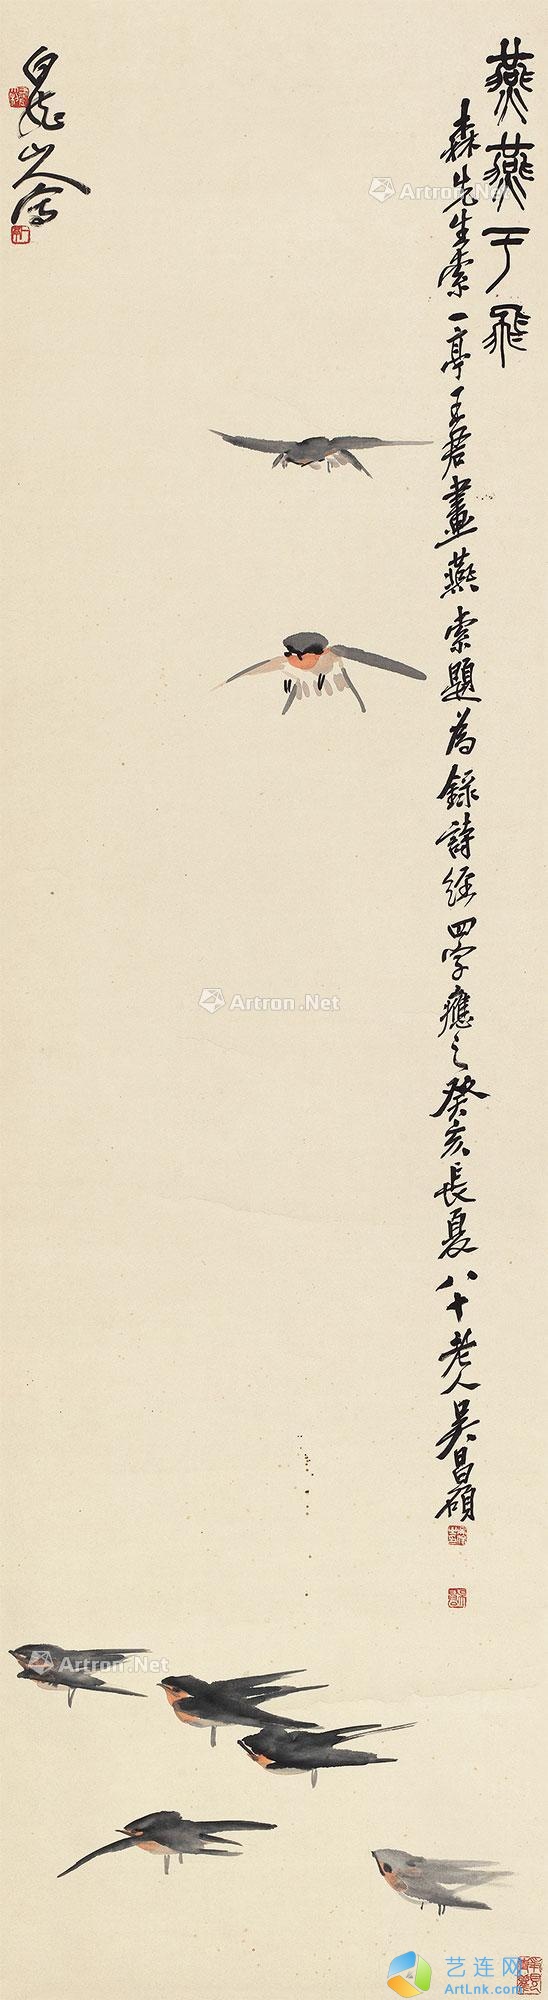 燕燕于飛
森先生索一亭王君畫燕索題為錄詩經四字應之癸亥長夏八十老人吳昌碩
白龍山人寫
Artron.Net
Artron.Net
Artron.Net
艺连网
ArtLnk.com